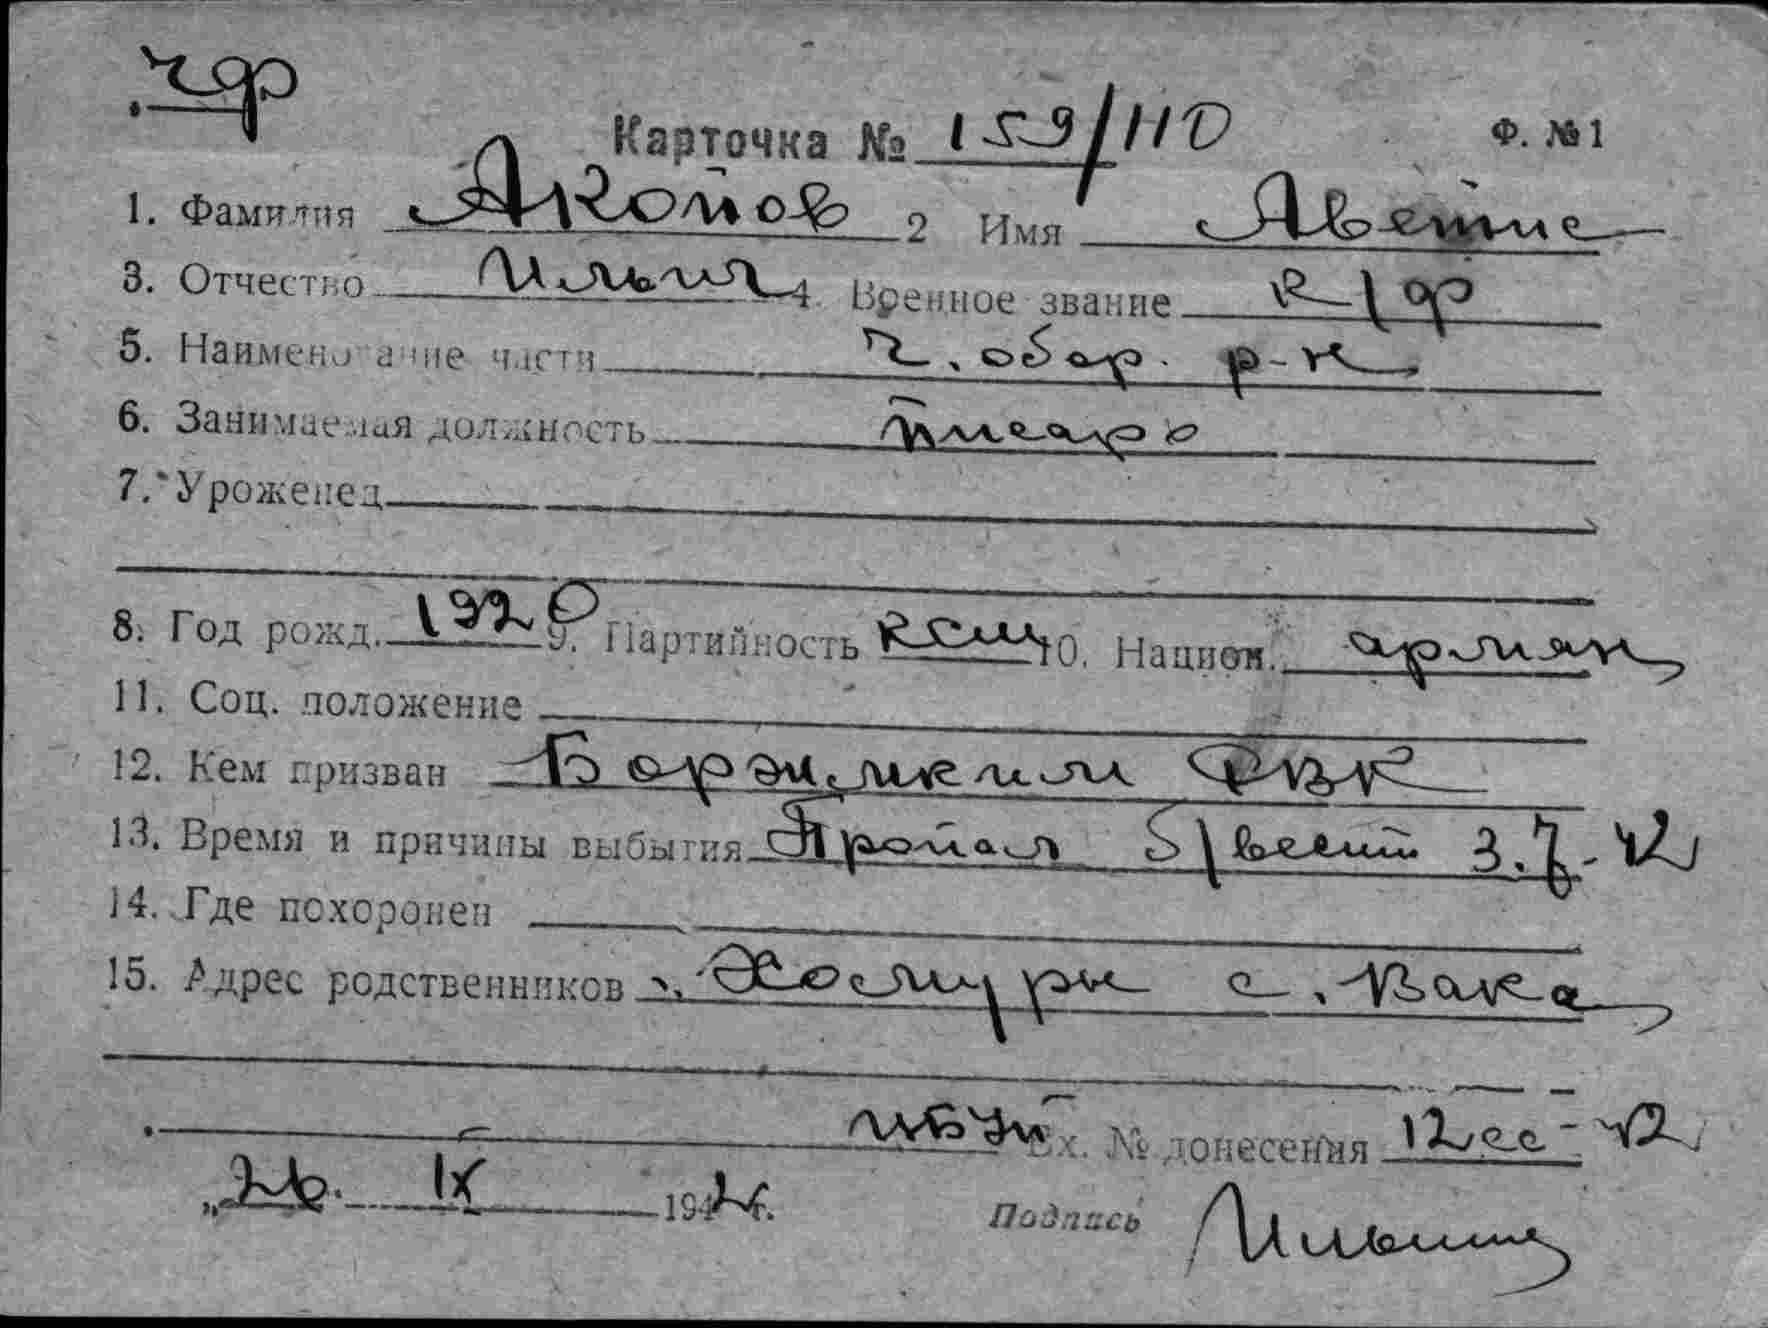 чф
Карточка № 159/110 Ф. № 1
1. Фамилия Акопов 2 Имя Аветис
3. Отчество Ильич 4. Военное звание к/ф
5. Наименование части ч. обор. р-н
6. Занимаемая должность писарь
7. Уроженец
8. Год рожд. 1920 9. Партийность ксм 10. Национ. армян
11. Соц. положение
12. Кем призван РВК
13. Время и причины выбытия Пропал б/вест 3.7.42
14. Где похоронен
15. Адрес родственников с. Вака
Вх. № донесения 12сс-42
„26. IX 1942г. Подпись